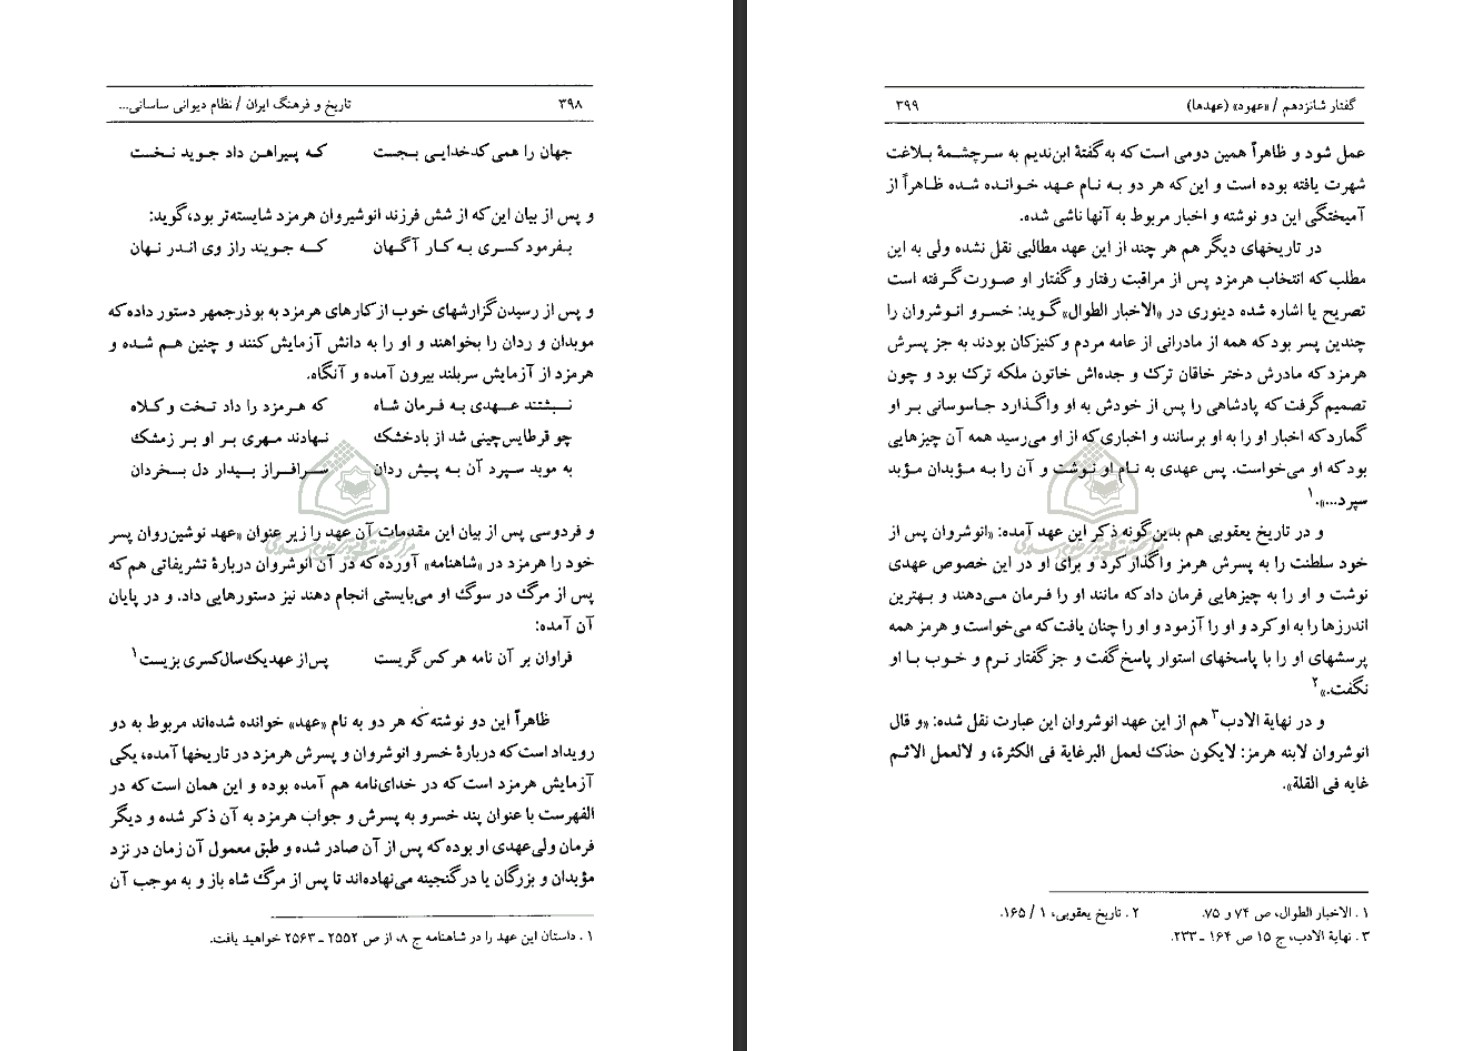 ۳۹۸ تاریخ و فرهنگ ایران / نظام دیوانی ساسانی...
جهان را همی کدخدایی بجست که پیراهن داد جوید نخست
و پس از بیان این‌که از شش فرزند انوشیروان هرمزد شایسته‌تر بود، گوید:
بفرمود کسری به کار آگهان که جویند راز وی اندر نهان
و پس از رسیدن گزارشهای خوب از کارهای هرمزد به بوذرجمهر دستور داده که
موبدان و ردان را بخواهند و او را به دانش آزمایش کنند و چنین هم شده و
هرمزد از آزمایش سربلند بیرون آمده و آنگاه.
نبشتند عهدی به فرمان شاه که هرمزد را داد تخت و کلاه
چو قرطاس چینی شد از باد خشک نهادند مهری بر او بر زمشک
به موبد سپرد آن به پیش ردان سرافراز بیدار دل بخردان
و فردوسی پس از بیان این مقدمات آن عهد را زیر عنوان «عهد نوشین‌روان پسر
خود را هرمزد در «شاهنامه» آورده که در آن انوشروان دربارهٔ تشریفاتی هم که
پس از مرگ در سوگ او می‌بایستی انجام دهند نیز دستورهایی داد. و در پایان
آن آمده:
فراوان بر آن نامه هر کس گریست پس از عهد یک سال کسری بزیست۱
ظاهراً این دو نوشته که هر دو به نام «عهد» خوانده شده‌اند مربوط به دو
رویداد است که دربارهٔ خسرو انوشروان و پسرش هرمزد در تاریخها آمده، یکی
آزمایش هرمزد است که در خدای‌نامه هم آمده بوده و این همان است که در
الفهرست با عنوان پند خسرو به پسرش و جواب هرمزد به آن ذکر شده و دیگر
فرمان ولی‌عهدی او بوده که پس از آن صادر شده و طبق معمول آن زمان در نزد
مؤبدان و بزرگان یا در گنجینه می‌نهاده‌اند تا پس از مرگ شاه باز و به موجب آن
۱ . داستان این عهد را در شاهنامه ج ۸، از ص ۲۵۵۲ ـ ۲۵۶۳ خواهید یافت.
گفتار شانزدهم / «عهود» (عهدها) ۳۹۹
عمل شود و ظاهراً همین دومی است که به گفتهٔ ابن‌ندیم به سرچشمهٔ بلاغت
شهرت یافته بوده است و این که هر دو به نام عهد خوانده شده ظاهراً از
آمیختگی این دو نوشته و اخبار مربوط به آنها ناشی شده.
در تاریخهای دیگر هم هر چند از این عهد مطالبی نقل نشده ولی به این
مطلب که انتخاب هرمزد پس از مراقبت رفتار و گفتار او صورت گرفته است
تصریح یا اشاره شده دینوری در «الاخبار الطوال» گوید: خسرو انوشروان را
چندین پسر بود که همه از مادرانی از عامه مردم و کنیزکان بودند به جز پسرش
هرمزد که مادرش دختر خاقان ترک و جده‌اش خاتون ملکه ترک بود و چون
تصمیم گرفت که پادشاهی را پس از خودش به او واگذارد جاسوسانی بر او
گمارد که اخبار او را به او برسانند و اخباری که از او می‌رسید همه آن چیزهایی
بود که او می‌خواست. پس عهدی به نام او نوشت و آن را به مؤبدان مؤبد
سپرد...».۱
و در تاریخ یعقوبی هم بدین‌گونه ذکر این عهد آمده: «انوشروان پس از
خود سلطنت را به پسرش هرمز واگذار کرد و برای او در این خصوص عهدی
نوشت و او را به چیزهایی فرمان داد که مانند او را فرمان می‌دهند و بهترین
اندرزها را به او کرد و او را آزمود و او را چنان یافت که می‌خواست و هرمز همه
پرسشهای او را با پاسخهای استوار پاسخ گفت و جز گفتار نرم و خوب با او
نگفت.»۲
و در نهایة الادب۳ هم از این عهد انوشروان این عبارت نقل شده: «و قال
انوشروان لابنه هرمز: لایکون حذک لعمل البرغایة فی الکثرة، و لالعمل الاثم
غایه فی القلة».
۱ . الاخبار الطوال، ص ۷۴ و ۷۵. ۲ . تاریخ یعقوبی، ۱ / ۱۶۵.
۳ . نهایة الادب، ج ۱۵ ص ۱۶۴ ـ ۲۳۳.